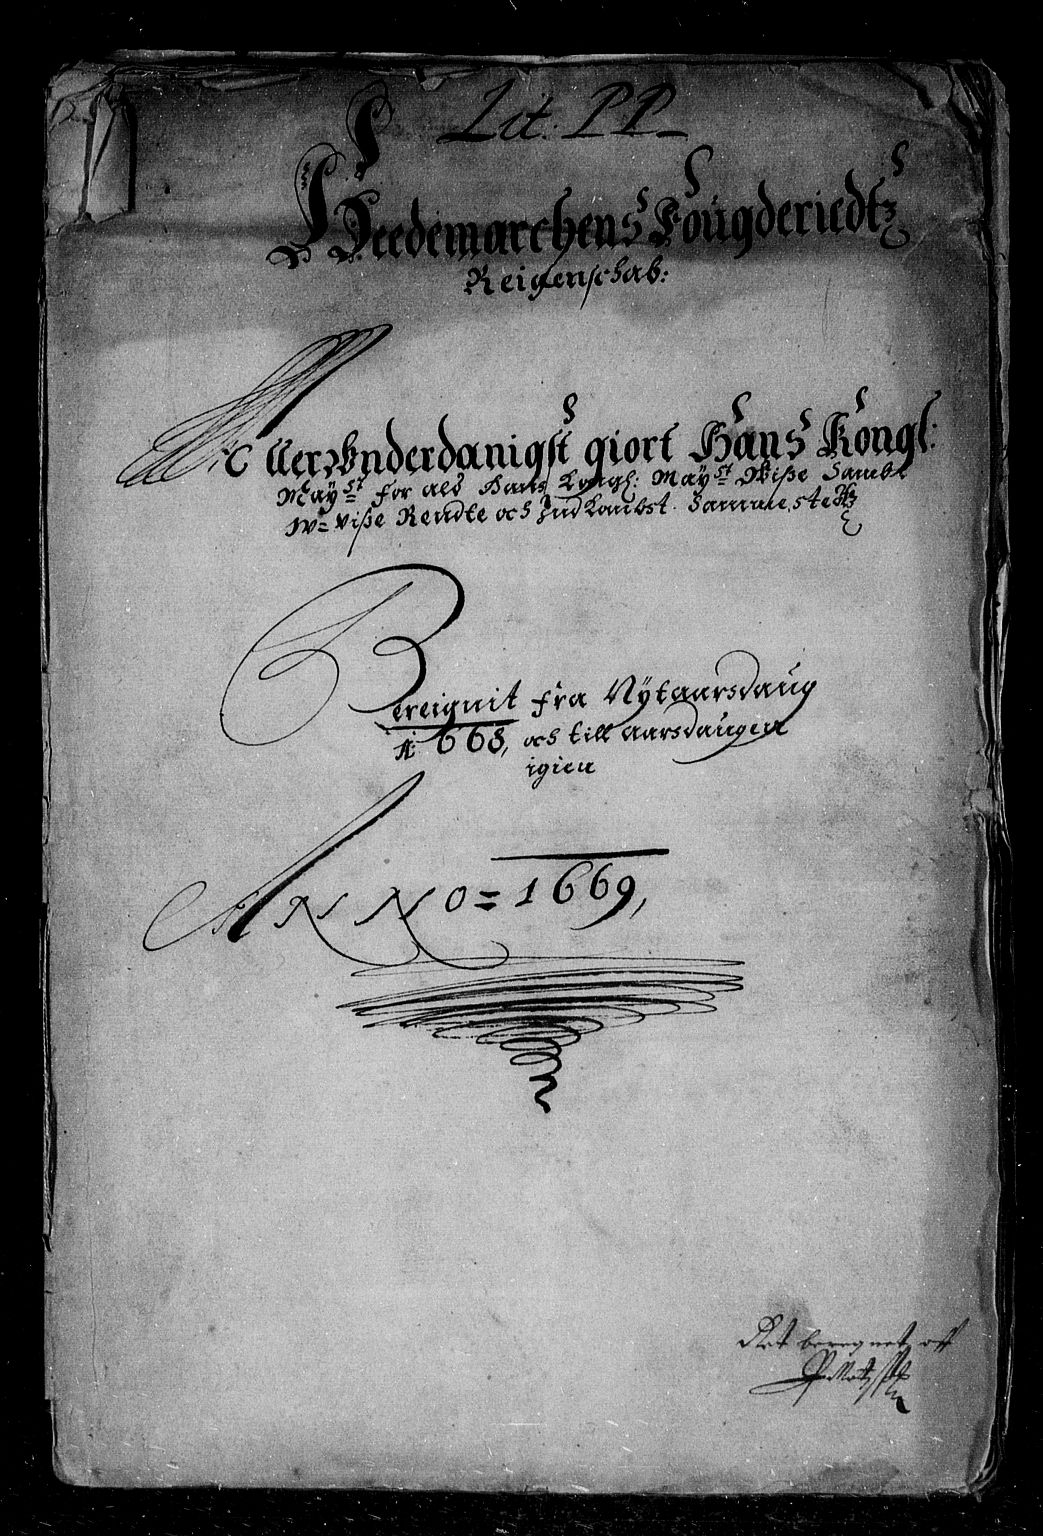 Lit: PP
Heedemarchens Fougderiedtz
Reigenschab:
Allervnderdanigst giort Hans Kongl:
Mayst for ald Hans Kongl: Mayst Wiße Sambt
W= viße Rendte och Indkombst. Sammestetz
Bereignit fra Nytaarsdaug
A: 668, och till aarsdaugen
igien
ANNO = 1669,
Ret beregnet aff